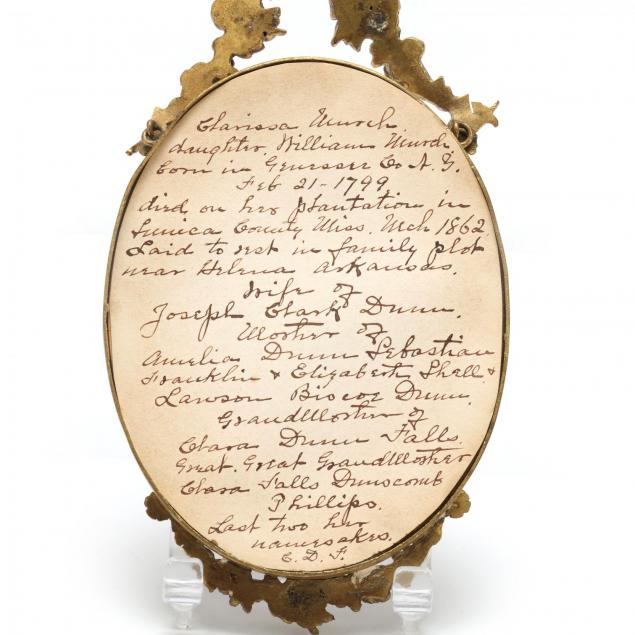 Clarissa Murch
daughter William Murch
born in Genessee Co N.Y.
Feb 21-1799
died on her plantation in
Tunica County Miss. Mch 1862
Laid to rest in family plot
near Helena Arkansas.
Wife of
Joseph Clark Dunn.
Mother of
Amelia Dunn Sebastian
Franklin & Elizabeth Shell &
Lawson Biscoe Dunn.
GrandMother of
Clara Dunn Falls.
Great. Great GrandMother
Clara Falls Dunscomb
Phillips.
Last two her
namesakes.
C.D.F.